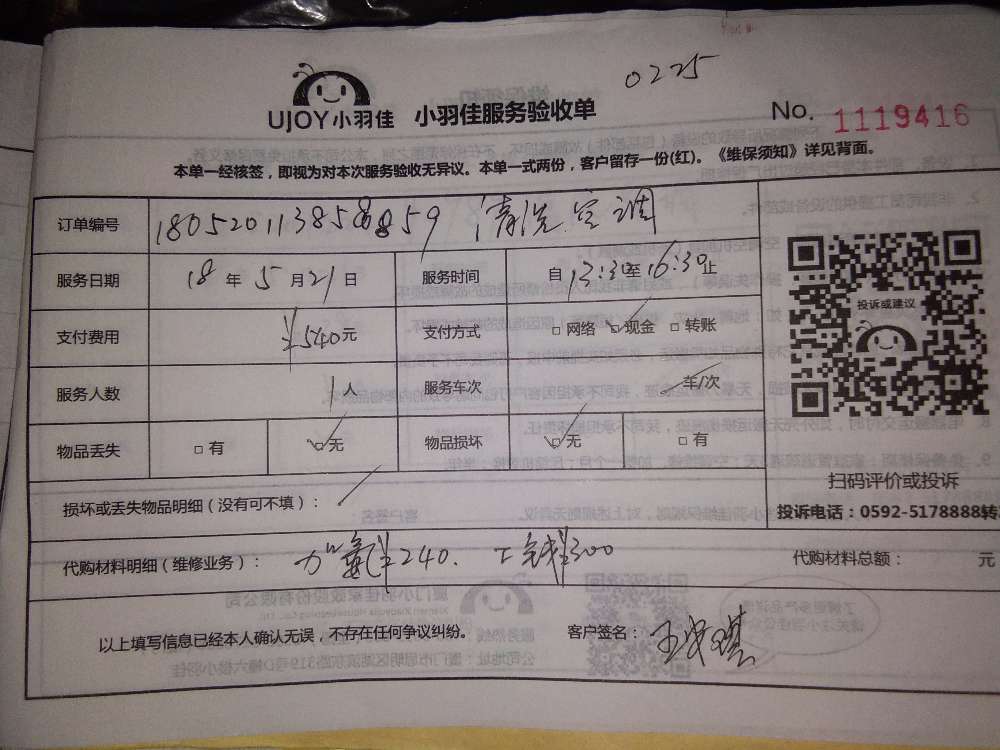 0225
UJOY小羽佳 小羽佳服务验收单 No. 1119416
本单一经核签，即视为对本次服务验收无异议。本单一式两份，客户留存一份(红)。《维保须知》详见背面。
订单编号 180520113858859 清洗空调
服务日期 18年5月21日 服务时间 自13:30至16:30止
支付费用 ¥540元 支付方式 □网络 ☑现金 □转账
服务人数 1人 服务车次 车/次
物品丢失 □有 ☑无 物品损坏 ☑无 □有
投诉或建议
扫码评价或投诉
投诉电话：0592-5178888转
损坏或丢失物品明细（没有可不填）：
代购材料明细（维修业务）： 加氟¥240. 工钱¥300 代购材料总额： 元
以上填写信息已经本人确认无误，不存在任何争议纠纷。 客户签名：